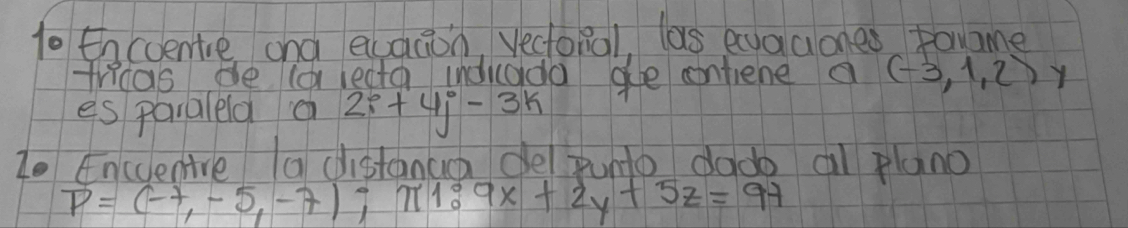 1o Encuentre una ecuación vectorial, las ecuaciones parame
tricas de la recta indicada qe contiene a (-3,1,2) y
es paralela a 2i + 4j - 3k
2o Encuentre la distancia del punto dado al plano
P = (-7, -5, -7) ; π1: 9x + 2y + 5z = 97